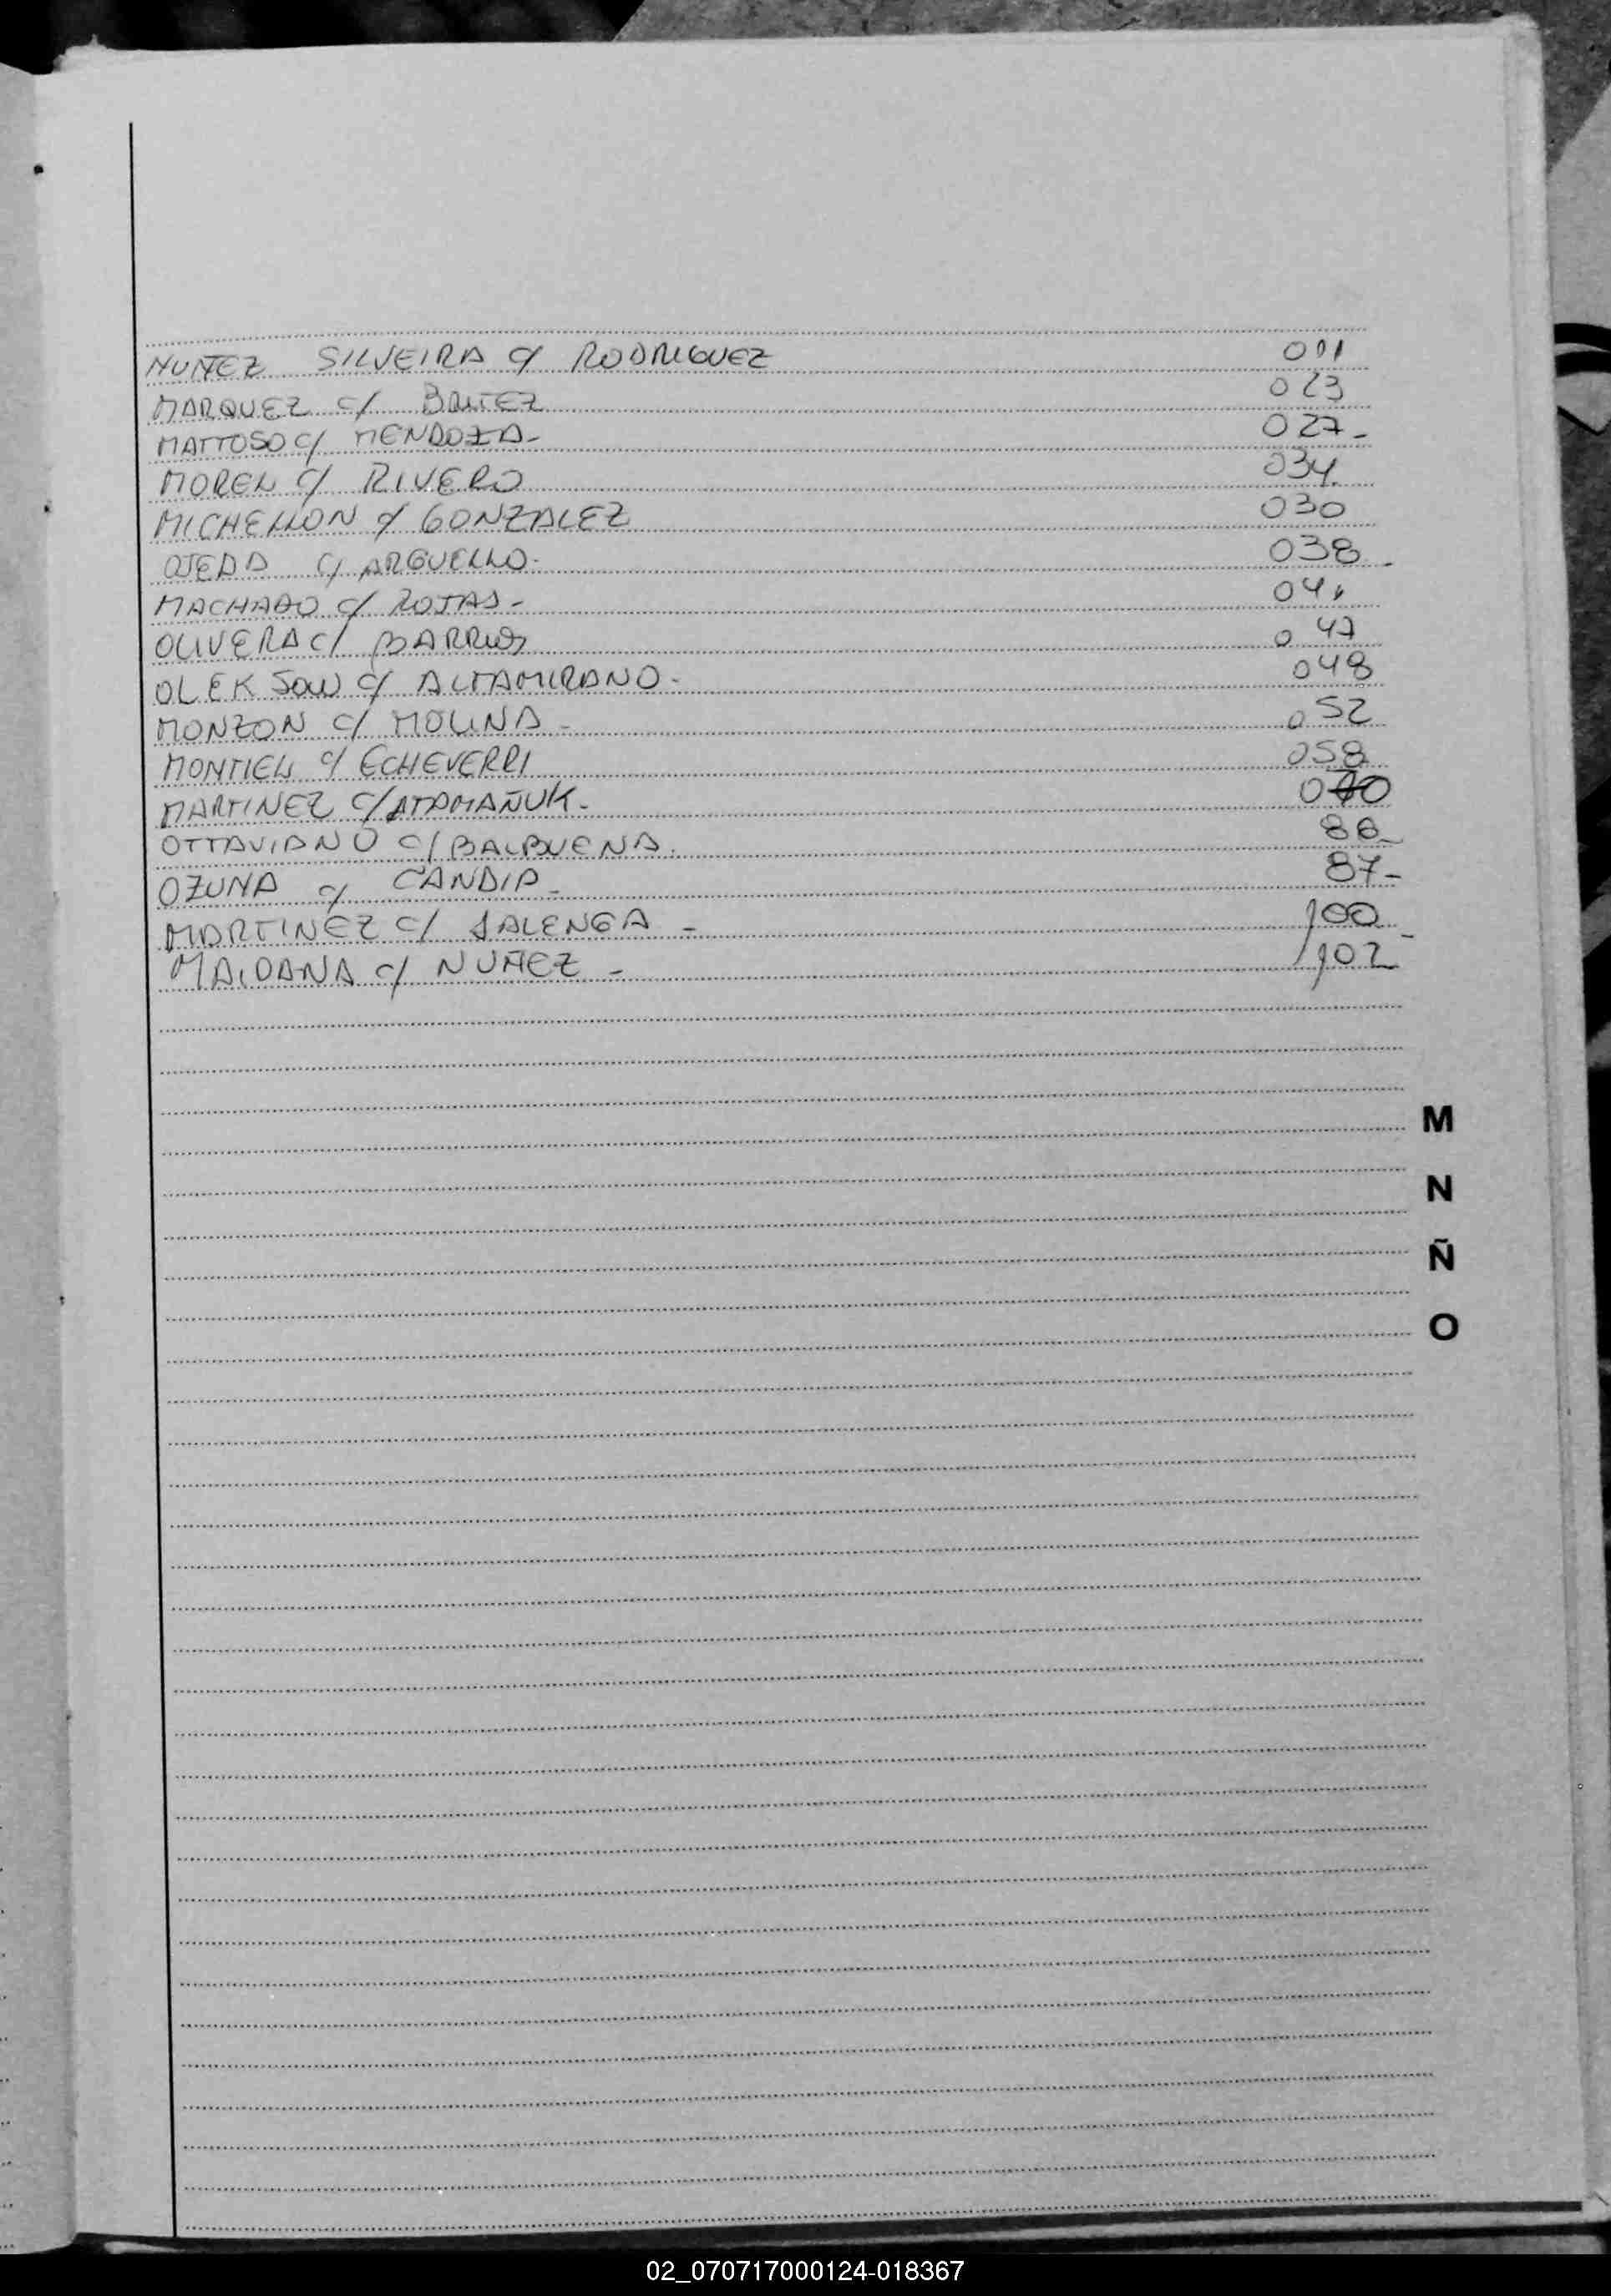 NUÑEZ SILVEIRA c/ RODRIGUEZ 011
MARQUEZ c/ BRITEZ 023
MATTOSO c/ MENDOZA- 027-
MOREL c/ RIVERO 034
MICHELLON c/ GONZALEZ 030
OJEDA c/ ARGUELLO- 038-
MACHADO c/ ROJAS-
OLIVERA c/ BARRIOS 047
OLEKSOW c/ ALTAMIRANO- 048
MONZON c/ MOLINA- 052
MONTIEL c/ ECHEVERRI 058
MARTINEZ c/ ATAMAÑUK- 070
OTTAVIANO c/ BALBUENA. 86-
OZUNA c/ CANDIA- 87-
MARTINEZ c/ SALENGA - 100-
MAIDANA c/ NUÑEZ - 102
M
N
Ñ
O
02_070717000124-018367